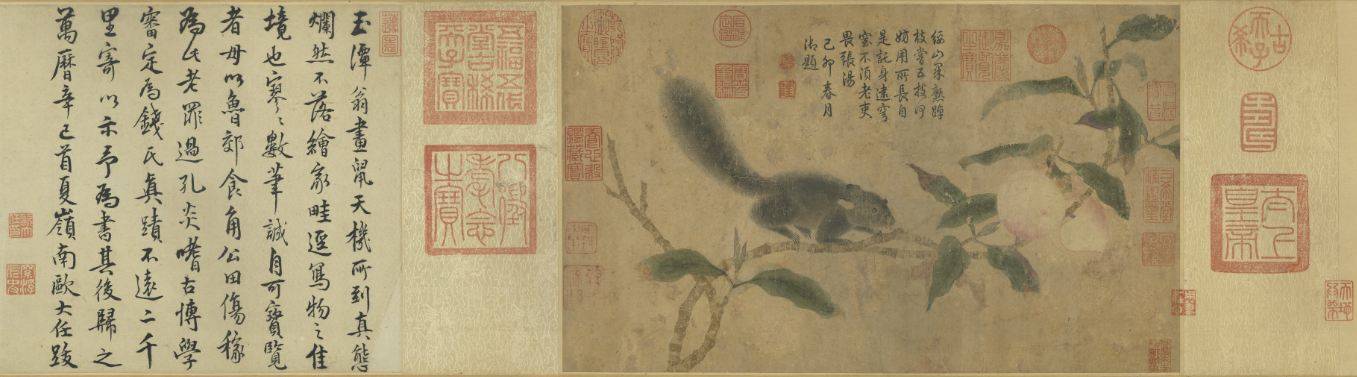 古稀天子
壽
太上皇帝
綏山果熟蹲
枝嘗五技何
妨用所長自
是託身遠穹
窒不須老吏
畏張湯
己卯春月
御題
五福五代堂古稀天子寶
八徵耄念之寶
玉潭翁畫鼠天機所到真態
爛然不落繪家畦逕寫物之佳
境也寥〻數筆誠自可寶覽
者毋以魯郊食角公田傷稼
為此老罪過孔炎嗜古博學
審定為錢氏真蹟不遠二千
里寄以示予為書其後歸之
萬曆辛巳首夏嶺南歐大任跋